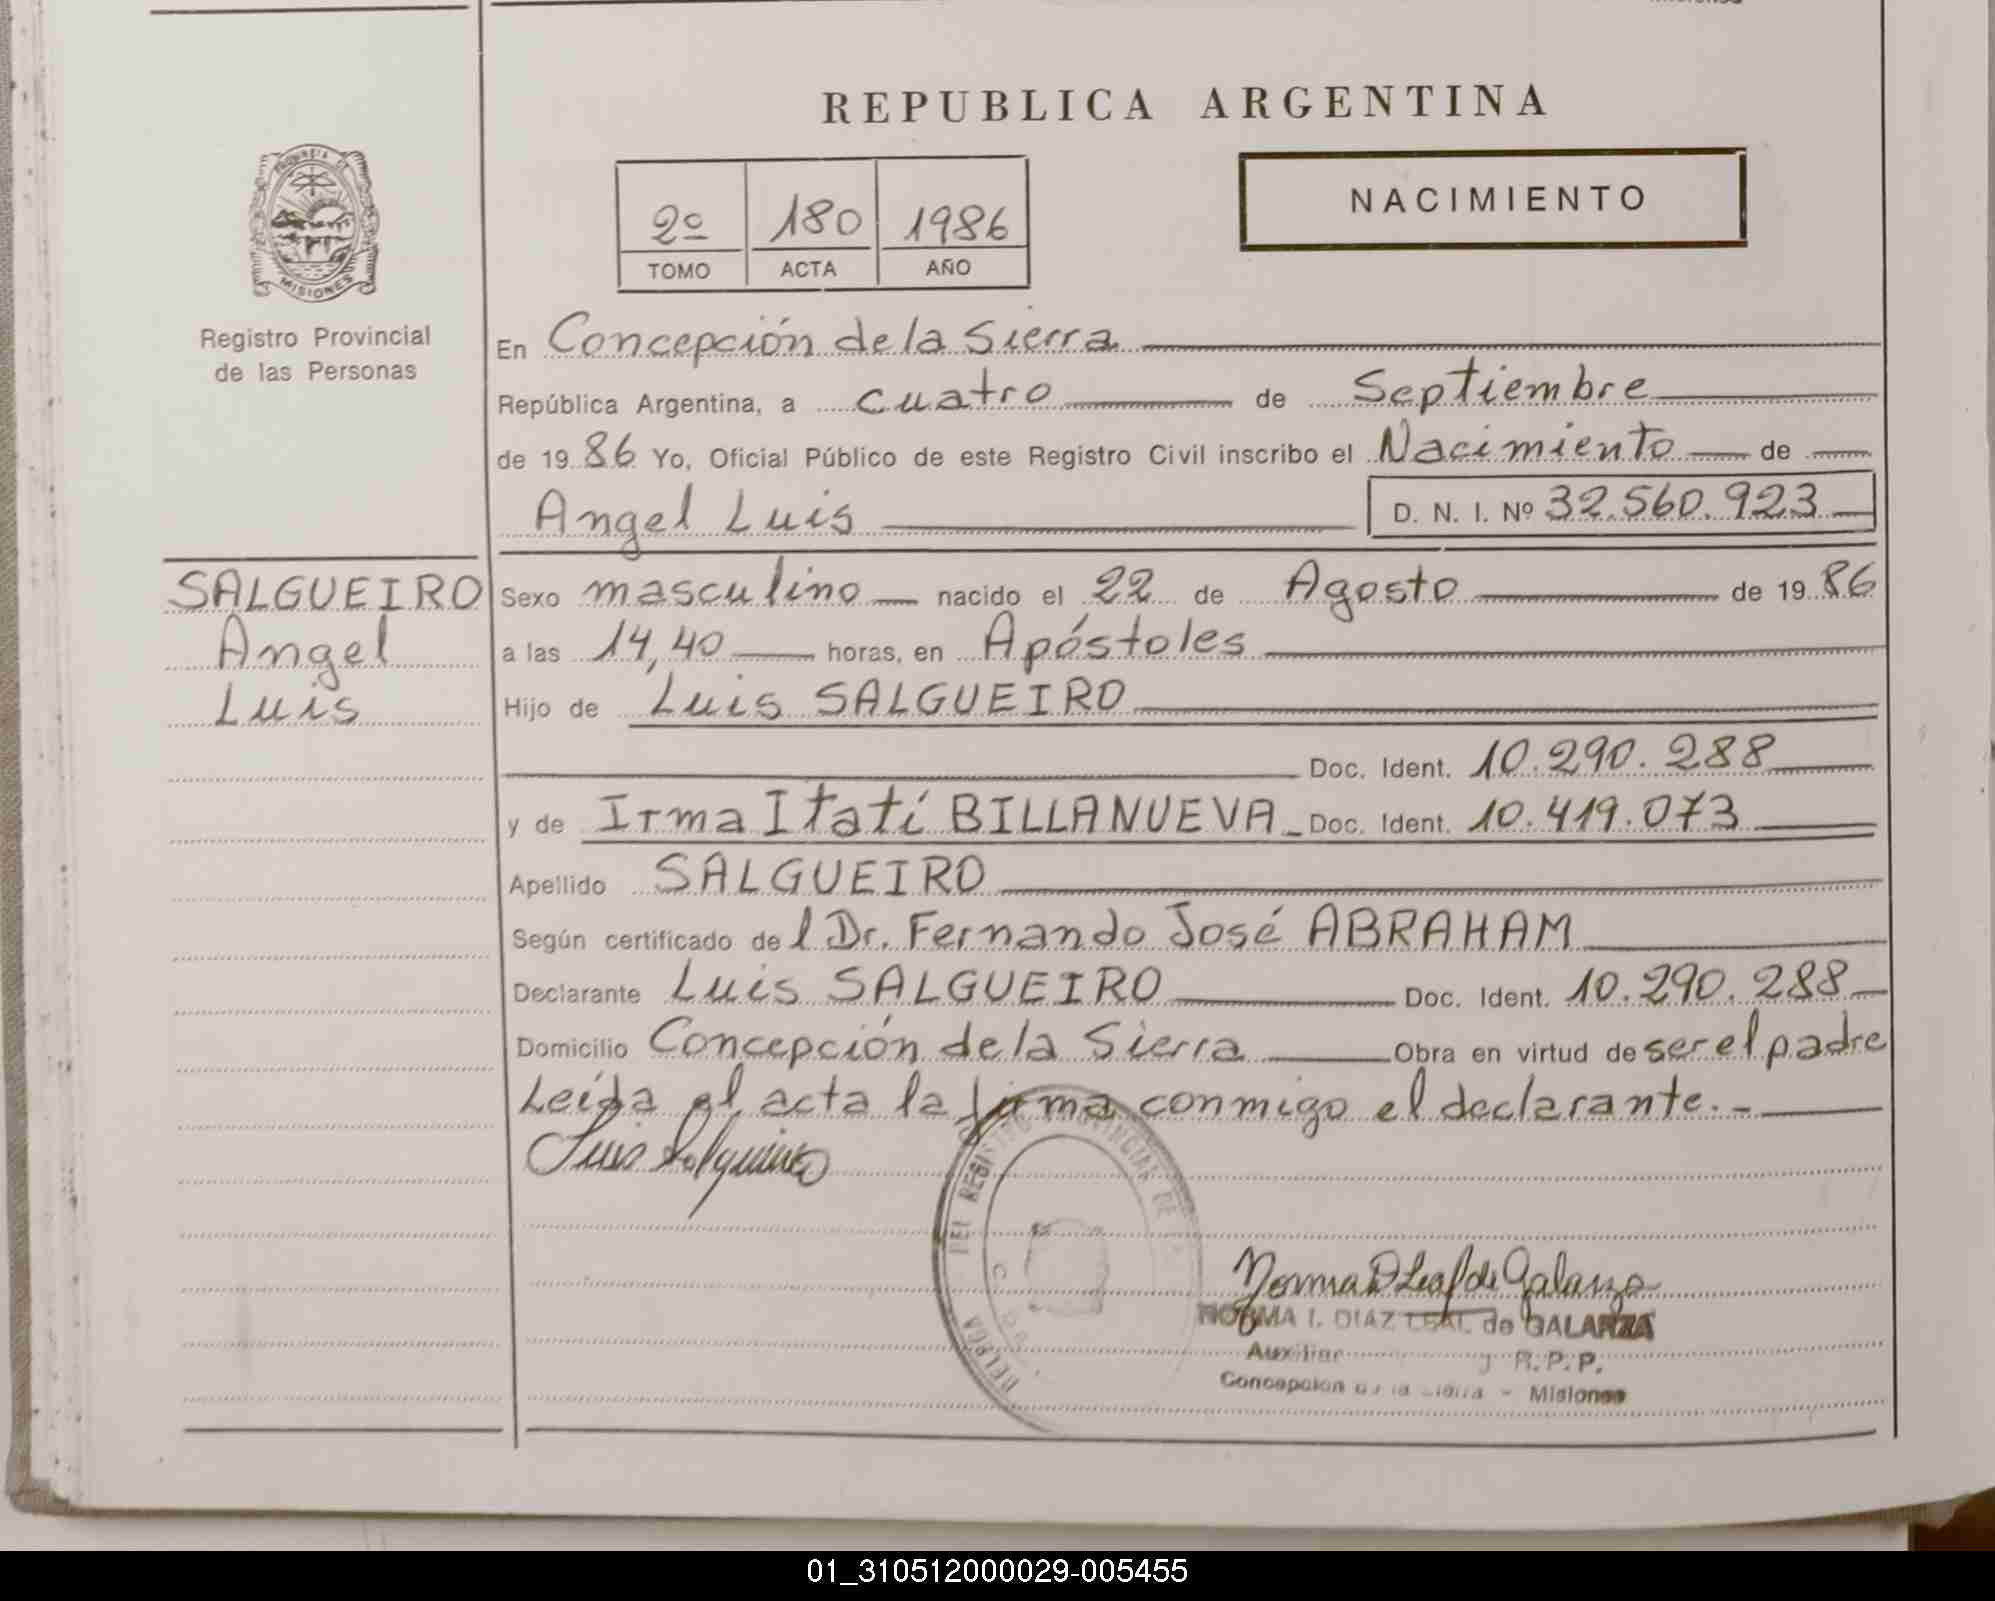 REPUBLICA ARGENTINA
2º 180 1986
TOMO ACTA AÑO
NACIMIENTO
PROVINCIA DE
MISIONES
Registro Provincial
de las Personas
En Concepción de la Sierra
República Argentina, a cuatro de Septiembre
de 1986 Yo, Oficial Público de este Registro Civil inscribo el Nacimiento de
Angel Luis D. N. I. Nº 32.560.923
SALGUEIRO
Angel
Luis
Sexo masculino nacido el 22 de Agosto de 1986
a las 14,40 horas, en Apóstoles
Hijo de Luis SALGUEIRO
Doc. Ident. 10.290.288
y de Irma Itatí BILLANUEVA Doc. Ident. 10.419.073
Apellido SALGUEIRO
Según certificado del Dr. Fernando José ABRAHAM
Declarante Luis SALGUEIRO Doc. Ident. 10.290.288
Domicilio Concepción de la Sierra Obra en virtud de ser el padre
Leída el acta la firma conmigo el declarante.-
Luis Salgueiro
DEL REGISTRO PROVINCIAL DE
Norma D Leal de Galarza
NORMA I. DIAZ LEAL de GALARZA
Auxiliar R. P. P.
Concepcion de la Sierra - Misiones
01_310512000029-005455